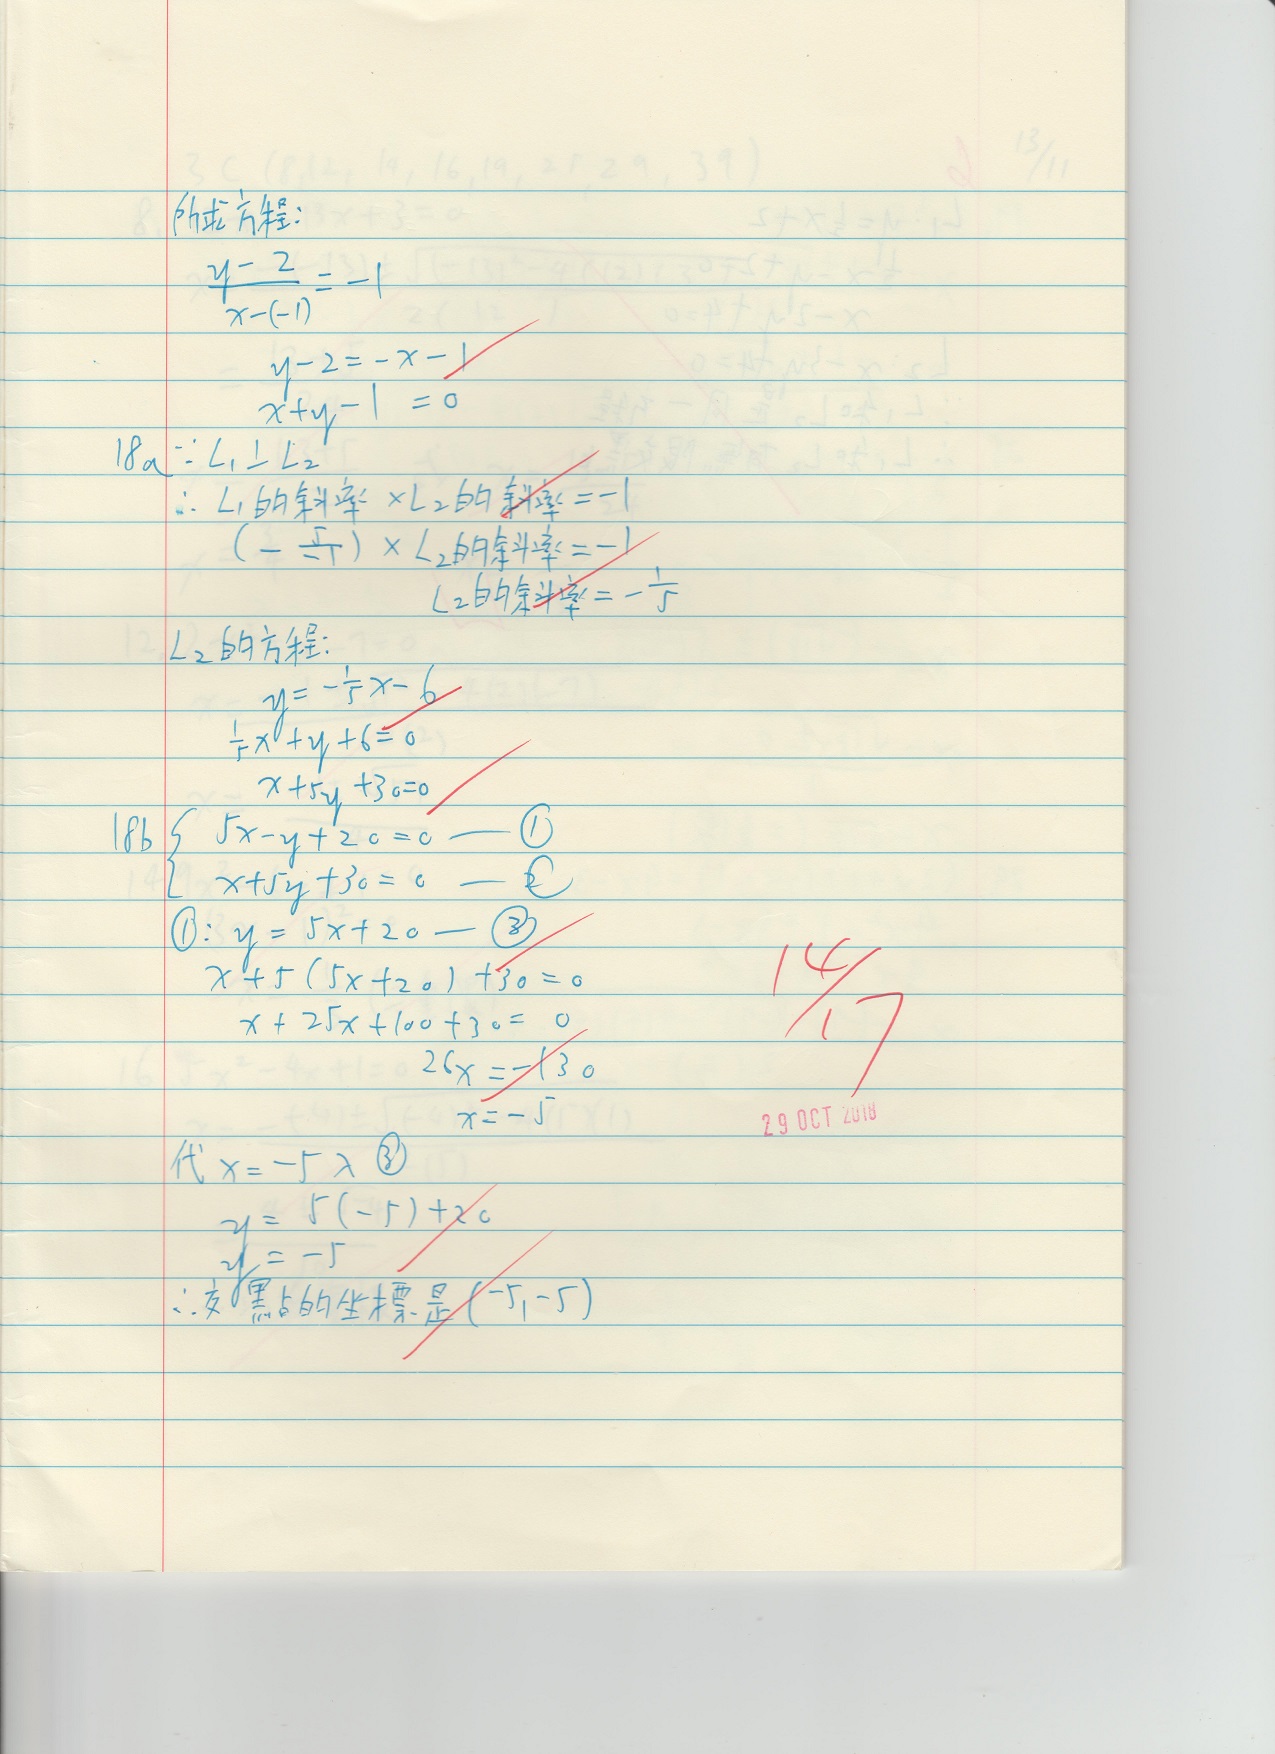 所求方程:
y-2/x-(-1) = -1
y-2=-x-1
x+y-1 =0
18a ∵ L₁⊥L₂
∴ L₁的斜率 ×L₂的斜率=-1
(- 5/-1) × L₂的斜率=-1
L₂的斜率=-1/5
L₂的方程:
y=-1/5x-6
1/5x+y+6=0
x+5y+30=0
18b { 5x-y+20=0 — ①
x+5y+30=0 — ②
①: y = 5x+20 — ③
x+5(5x+20)+30=0
x+25x+100+30= 0
26x=-130
x=-5
14/17
29 OCT 2018
代 x=-5 入 ③
y= 5(-5)+20
y = -5
∴交點的坐標是(-5,-5)